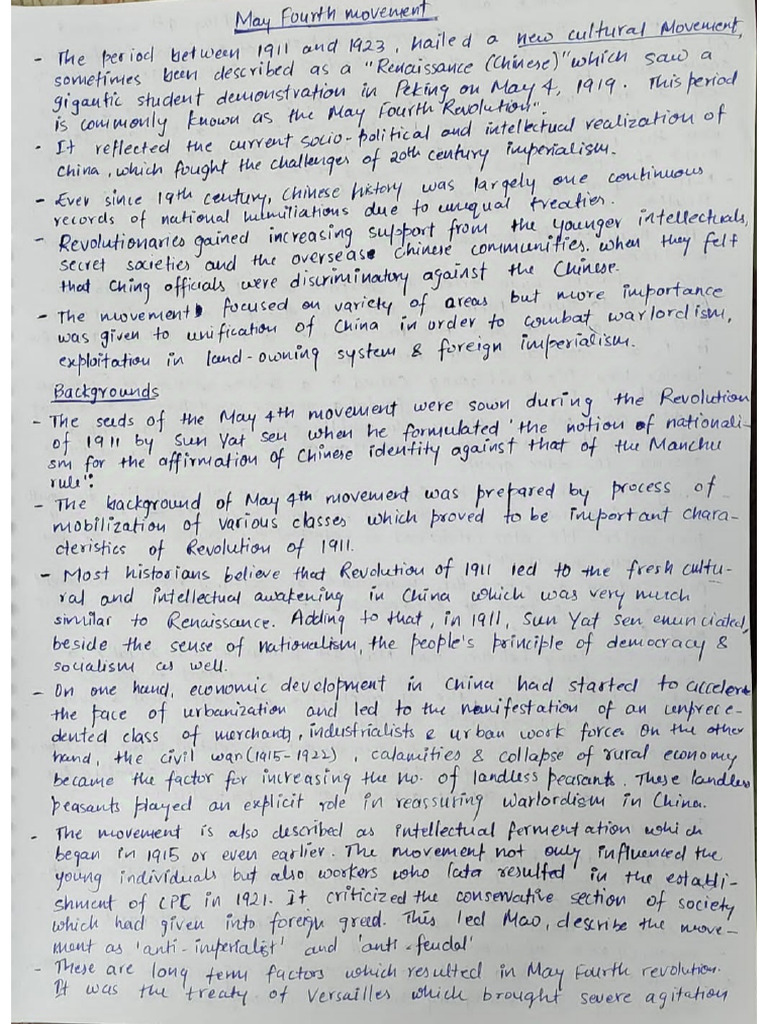 May Fourth movement
- The period between 1911 and 1923, hailed a new cultural Movement,
sometimes been described as a "Renaissance (Chinese)" which saw a
gigantic student demonstration in Peking on May 4, 1919. This period
is commonly known as the May Fourth Revolution".
- It reflected the current socio-political and intellectual realization of
China, which fought the challenges of 20th century imperialism.
- Ever since 19th century, Chinese history was largely one continuous
records of national humiliations due to unequal treaties.
- Revolutionaries gained increasing support from the younger intellectuals,
secret societies and the overseas Chinese communities. when they felt
that Ching officials were discriminatory against the Chinese.
- The movement focused on variety of areas but more importance
was given to unification of China in order to combat warlordism,
exploitation in land-owning system & foreign imperialism.
Backgrounds
- The seeds of the May 4th movement were sown during the Revolution
of 1911 by Sun Yat sen when he formulated 'the notion of nationali-
sm for the affirmation of Chinese identity against that of the Manchu
rule'.
- The background of May 4th movement was prepared by process of
mobilization of various classes which proved to be important chara-
cteristics of Revolution of 1911.
- Most historians believe that Revolution of 1911 led to the fresh cultu-
ral and intellectual awakening in China which was very much
similar to Renaissance. Adding to that, in 1911, Sun Yat sen enunciated,
beside the sense of nationalism, the people's principle of democracy &
socialism as well.
- On one hand, economic development in China had started to accelerate
the pace of urbanization and led to the manifestation of an unprece-
dented class of merchants, industrialists & urban work force. On the other
hand, the civil war (1915-1922), calamities & collapse of rural economy
became the factor for increasing the no. of landless peasants. These landless
peasants played an explicit role in reassuring warlordism in China.
- The movement is also described as intellectual fermentation which
began in 1915 or even earlier. The movement not only influenced the
young individuals but also workers who lata resulted in the establi-
shment of CPC in 1921. It criticized the conservative section of society
which had given into foreign greed. This led Mao, describe the move-
ment as 'anti-imperialist' and 'anti-feudal'
- These are long term factors which resulted in May Fourth revolution.
It was the treaty of Versailles which brought severe agitation